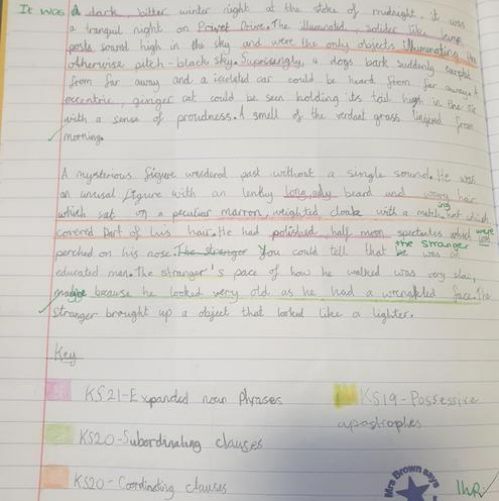 It was a dark, bitter winter night at the stoke of midnight. it was
a tranquil night on Privet Drive. The illuminated, solider like lamp
posts sound high in the sky and were the only objects illuminating the
otherwise pitch-black sky. Suprisingly, a dogs bark suddenly
from far away and a isolated car could be heard from far away. A
eccentric, ginger cat could be seen holding its tail high in the
with a sense of proudness. A smell of the verdant grass lingered from
morning.
A mysterious figure wandered past without a single sound. He was
an unusal figure with an lenthy long, beard and hair
which sat on a peculiar marron, weighted cloak with a hat which
covered part of his hair. He had polished, half moon spectacles which were
perched on his nose. The stranger You could tell that he the stranger was an
educated man. The stranger's pace of how he walked was very slow,
maybe because he looked very old as he had a wrenakled face. The
stranger brought up a object that looked like a lighter.
Key
KS21-Expanded noun phrases
KS19-Possessive
apostrophes
KS20-Subordinating clauses
KS20-Coordinating clauses
Mrs Brown says